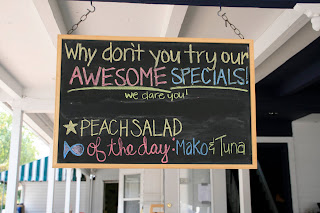 Why don't you try our
AWESOME SPECIALS!
we dare you!
PEACH SALAD
of the day: Mako & Tuna